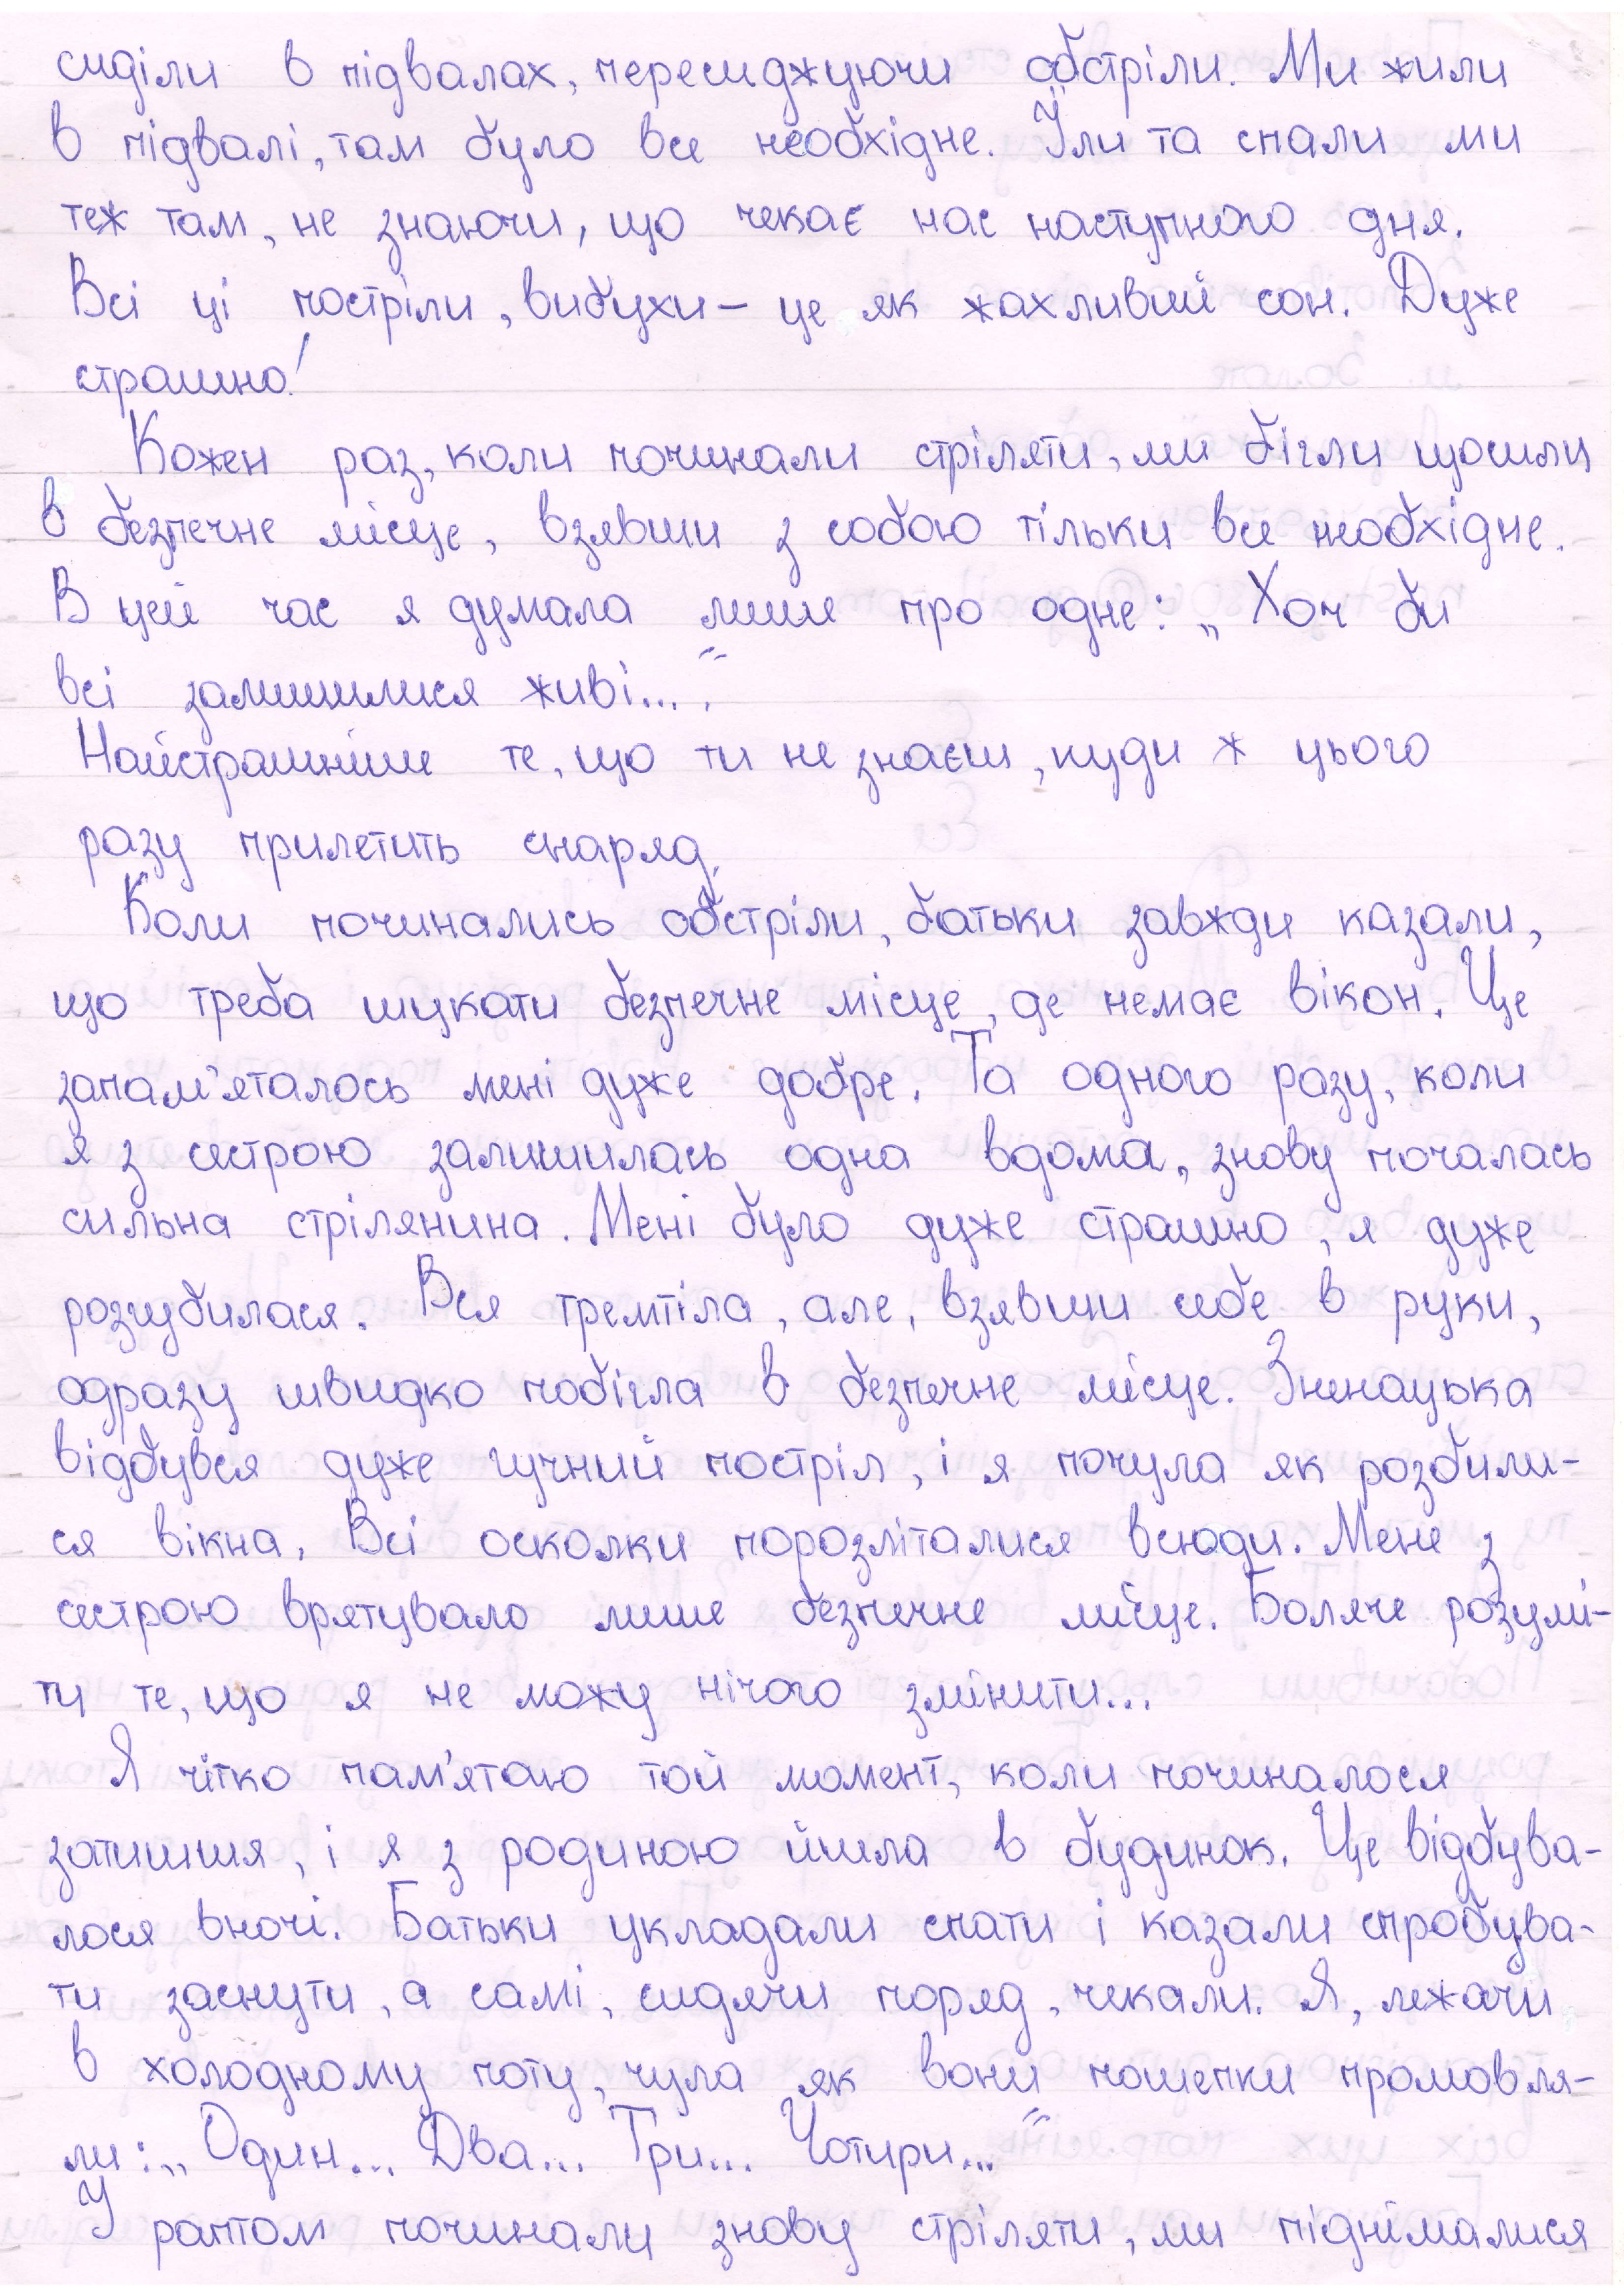 сиділи в підвалах, пересиджуючи обстріли. Ми жили
в підвалі, там було все необхідне. Їли та спали ми
теж там, не знаючи, що чекає нас наступного дня.
Всі ці постріли, вибухи – це як жахливий сон. Дуже
страшно!
Кожен раз, коли починали стріляти, ми бігли щосили
в безпечне місце, взявши з собою тільки все необхідне.
В цей час я думала лише про одне: „Хоч би
всі залишилися живі...".
Найстрашніше те, що ти не знаєш, куди ж цього
разу прилетить снаряд.
Коли починались обстріли, батьки завжди казали,
що треба шукати безпечне місце, де немає вікон. Це
запам'яталось мені дуже добре. Та одного разу, коли
я з сестрою залишилась одна вдома, знову почалась
сильна стрілянина. Мені було дуже страшно, я дуже
розгубилася. Вся тремтіла, але, взявши себе в руки,
одразу швидко побігла в безпечне місце. Зненацька
відбувся дуже гучний постріл, і я почула як розбили-
ся вікна. Всі осколки порозліталися всюди. Мене з
сестрою врятувало лише безпечне місце. Боляче розумі-
ти те, що я не можу нічого змінити...
Я чітко пам'ятаю той момент, коли починалося
затишшя, і я з родиною йшла в будинок. Це відбува-
лося вночі. Батьки укладали спати і казали спробува-
ти заснути, а самі, сидячи поряд, чекали. Я, лежачи
в холодному поту, чула як вони пошепки промовля-
ли: „Один... Два... Три... Чотири..."
У раптом починали знову стріляти, ми піднімалися